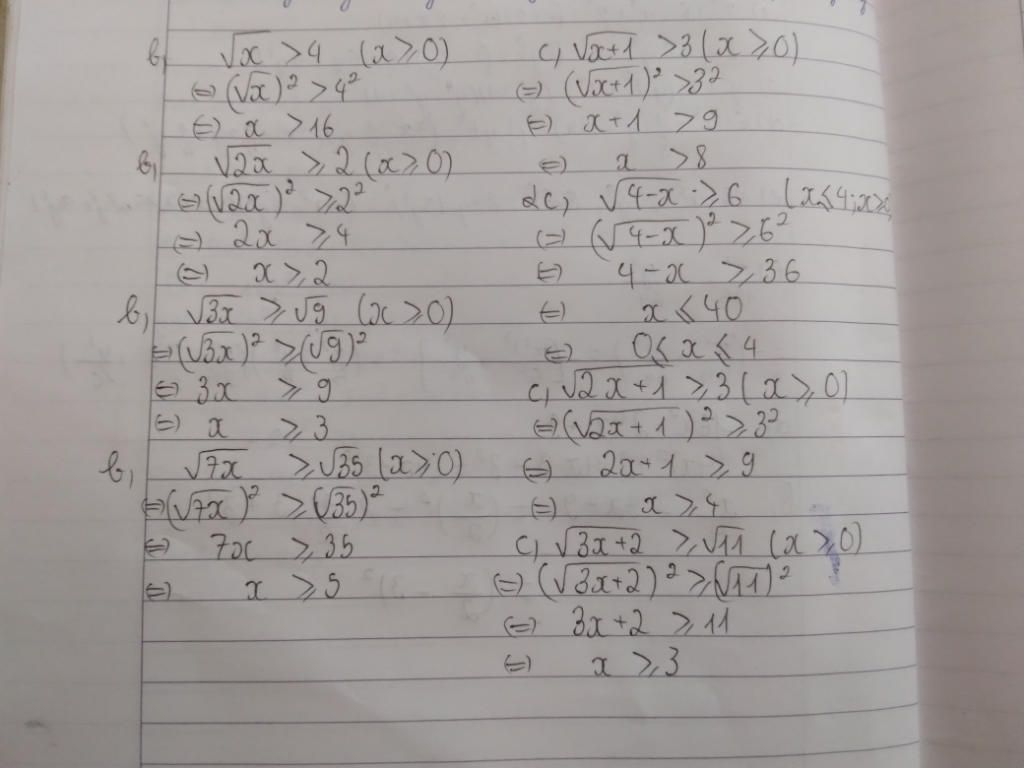 b, √x > 4 (x ≥ 0)
⇔ (√x)² > 4²
⇔ x > 16
b, √2x ≥ 2 (x ≥ 0)
⇔ (√2x)² ≥ 2²
⇔ 2x ≥ 4
⇔ x ≥ 2
b, √3x ≥ √9 (x ≥ 0)
⇔ (√3x)² ≥ (√9)²
⇔ 3x ≥ 9
⇔ x ≥ 3
b, √7x ≥ √35 (x ≥ 0)
⇔ (√7x)² ≥ (√35)²
⇔ 7x ≥ 35
⇔ x ≥ 5
c, √x+1 > 3 (x ≥ 0)
⇔ (√x+1)² > 3²
⇔ x+1 > 9
⇔ x > 8
2c, √4-x ≥ 6 (x ≤ 4; x ≥
⇔ (√4-x)² ≥ 6²
⇔ 4-x ≥ 36
⇔ x ≤ 40
⇔ 0 ≤ x ≤ 4
c, √2x+1 ≥ 3 (x ≥ 0)
⇔ (√2x+1)² ≥ 3²
⇔ 2x+1 ≥ 9
⇔ x ≥ 4
c, √3x+2 ≥ √11 (x ≥ 0)
⇔ (√3x+2)² ≥ (√11)²
⇔ 3x+2 ≥ 11
⇔ x ≥ 3